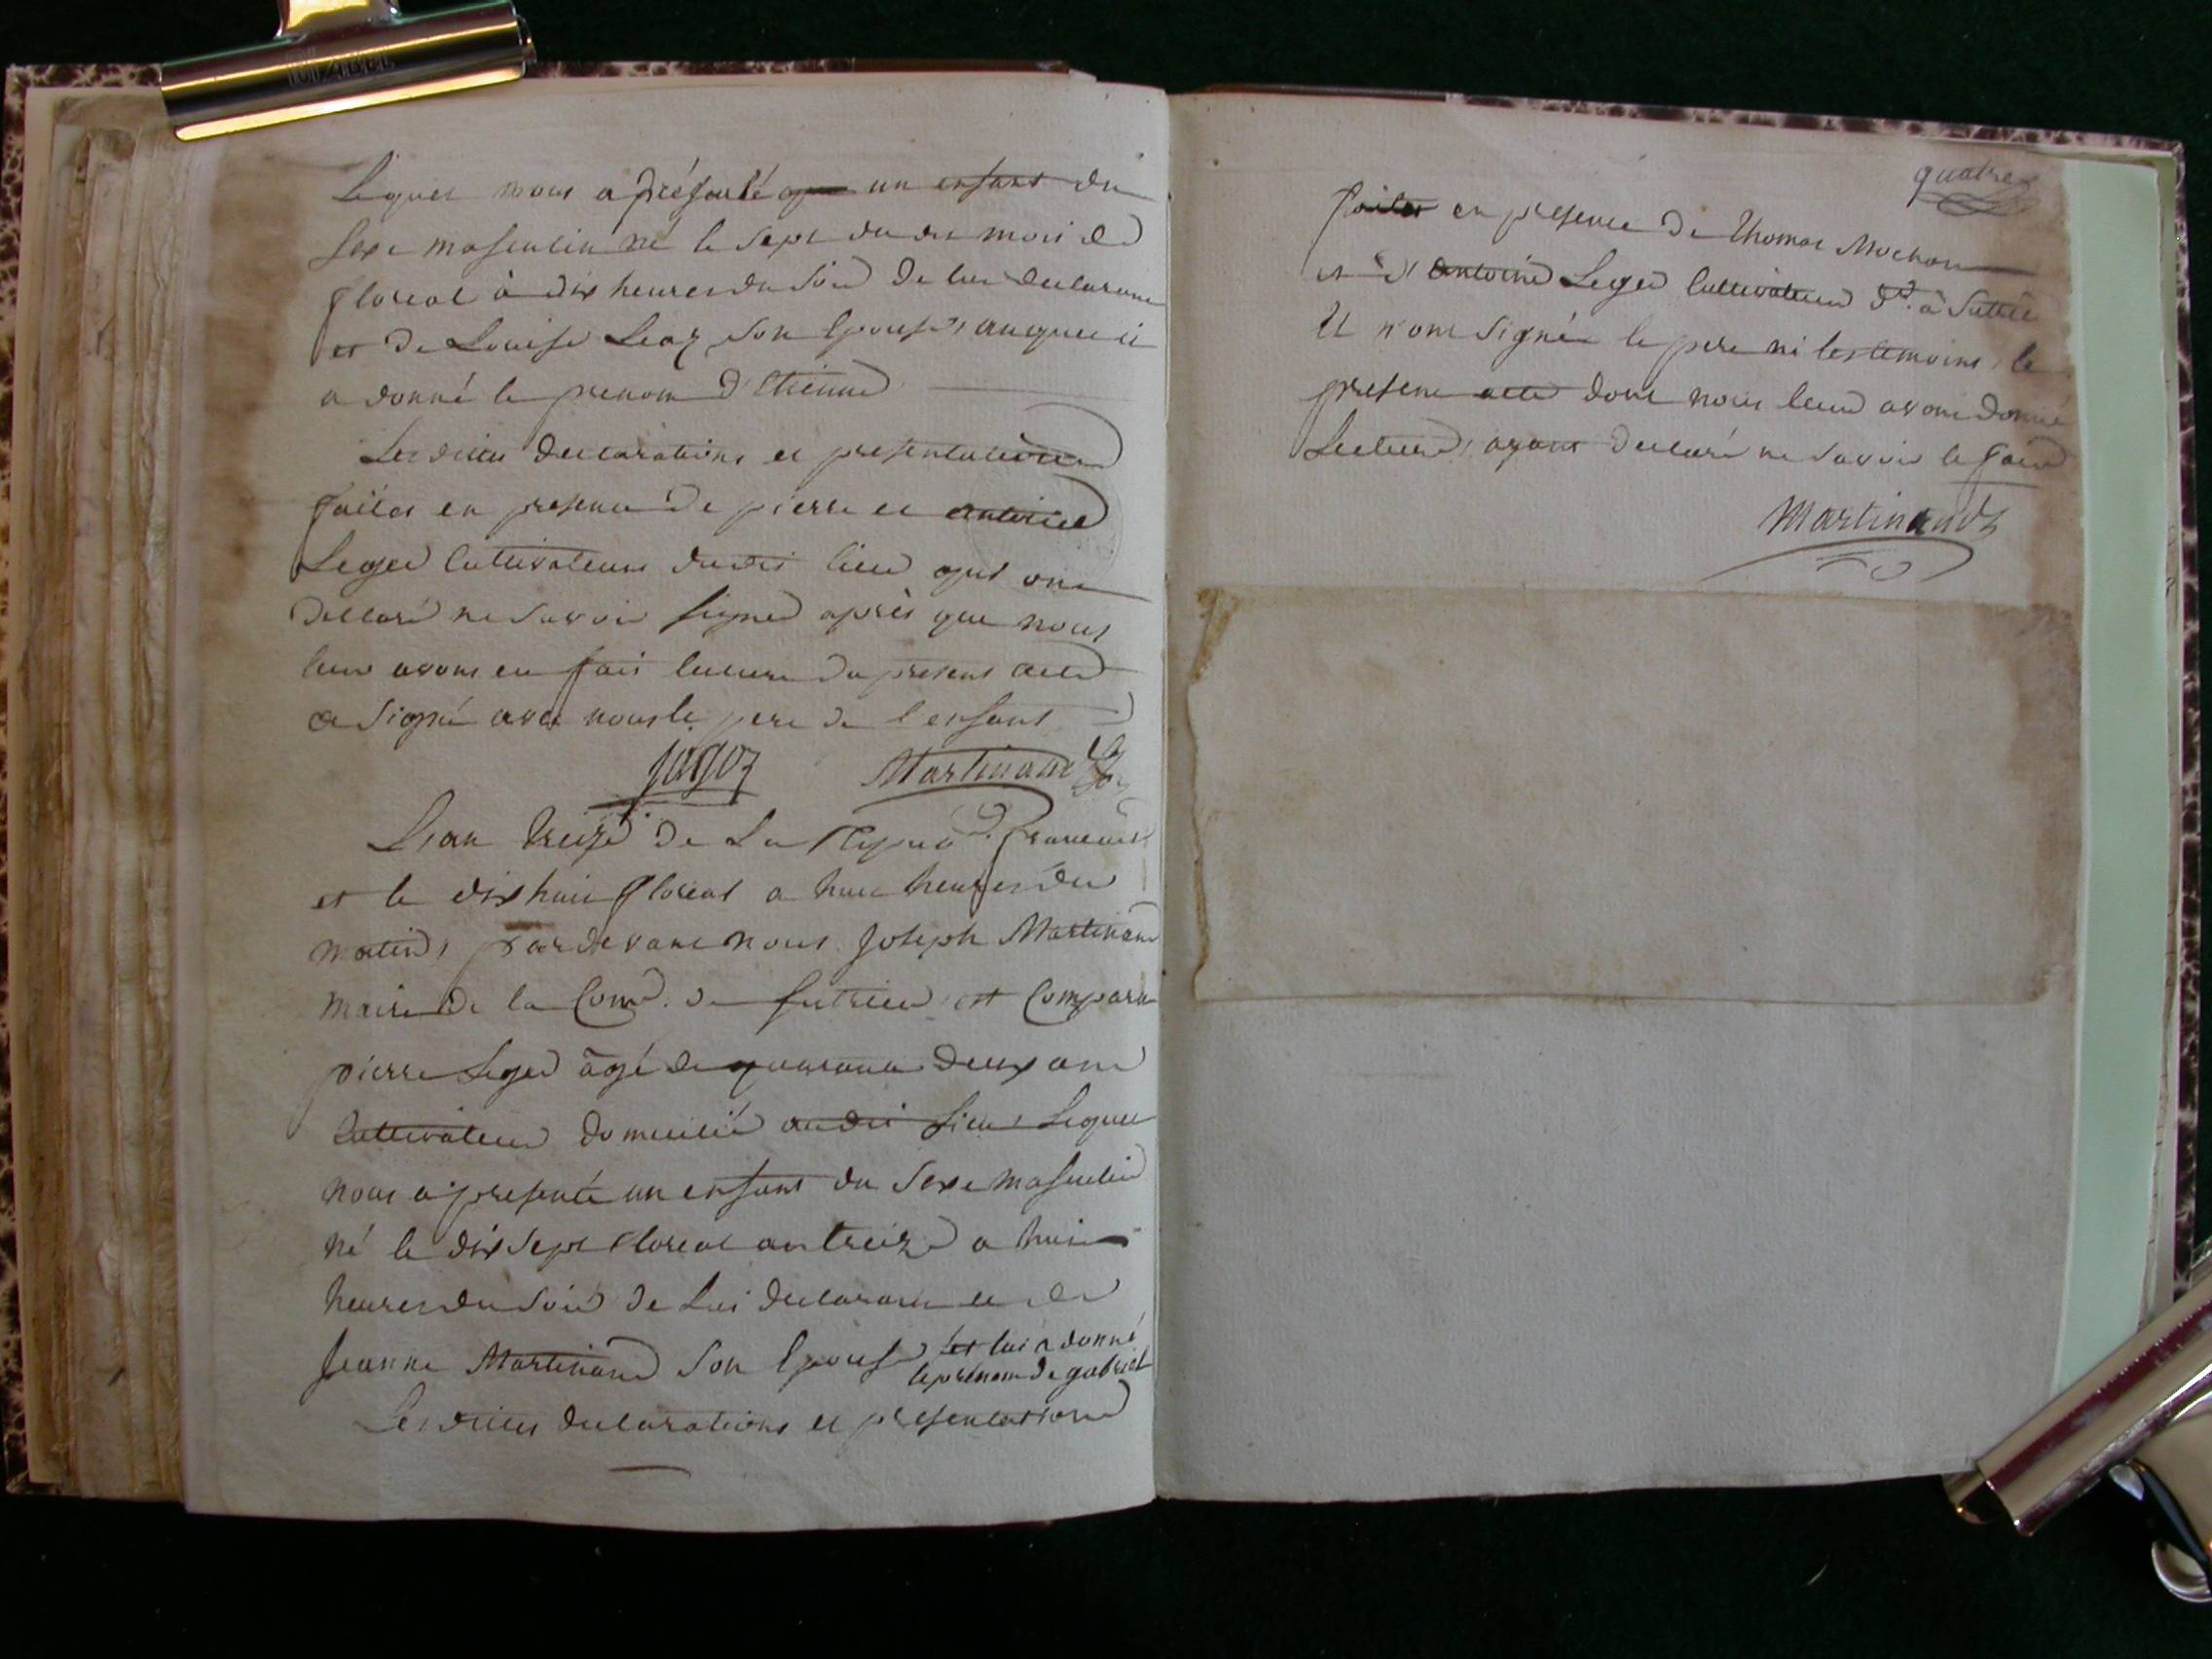 Lequel nous a présenté un enfant du
sexe masculin né le sept du du mois de
floreal à dix heures du soir de lui declarant
et de Louise Leaz son epouse, auquel il
a donné le prenom d'Etienne
Lesdites declarations et presentations
faites en presence de pierre et antoine
Leger Cultivateurs dudit lieu qui ont
declaré ne savoir signer après que nous
leur avons eu fait lecture du present acte
a signé avec nous le pere de l'enfant
Martinand
L'ean treize de La Repuq. francaise
et le dix huit floreal a huit heures du
matin, pardevant nous Joseph Martinand
maire de la Com. de Sutrieu est Comparu
pierre Leger âgé de quarante deux ans
Cultivateur domicilié audit lieu, Lequel
nous a presenté un enfant du sexe masculin
né le dix sept floreal an treize a huit
heures du soir de Lui declarant et de
Jeanne Martinand son epouse et lui a donné
le prénom de gabriel
Lesdites declarations et presentations
quatre
faites en presence de Thomas Mochon
et d'antoine Leger Cultivateurs dt. à Sutrieu
Et n'ont signé le pere ni les temoins, le
present acte dont nous leur avons donné
Lecture, ayant declaré ne savoir le faire
Martinand